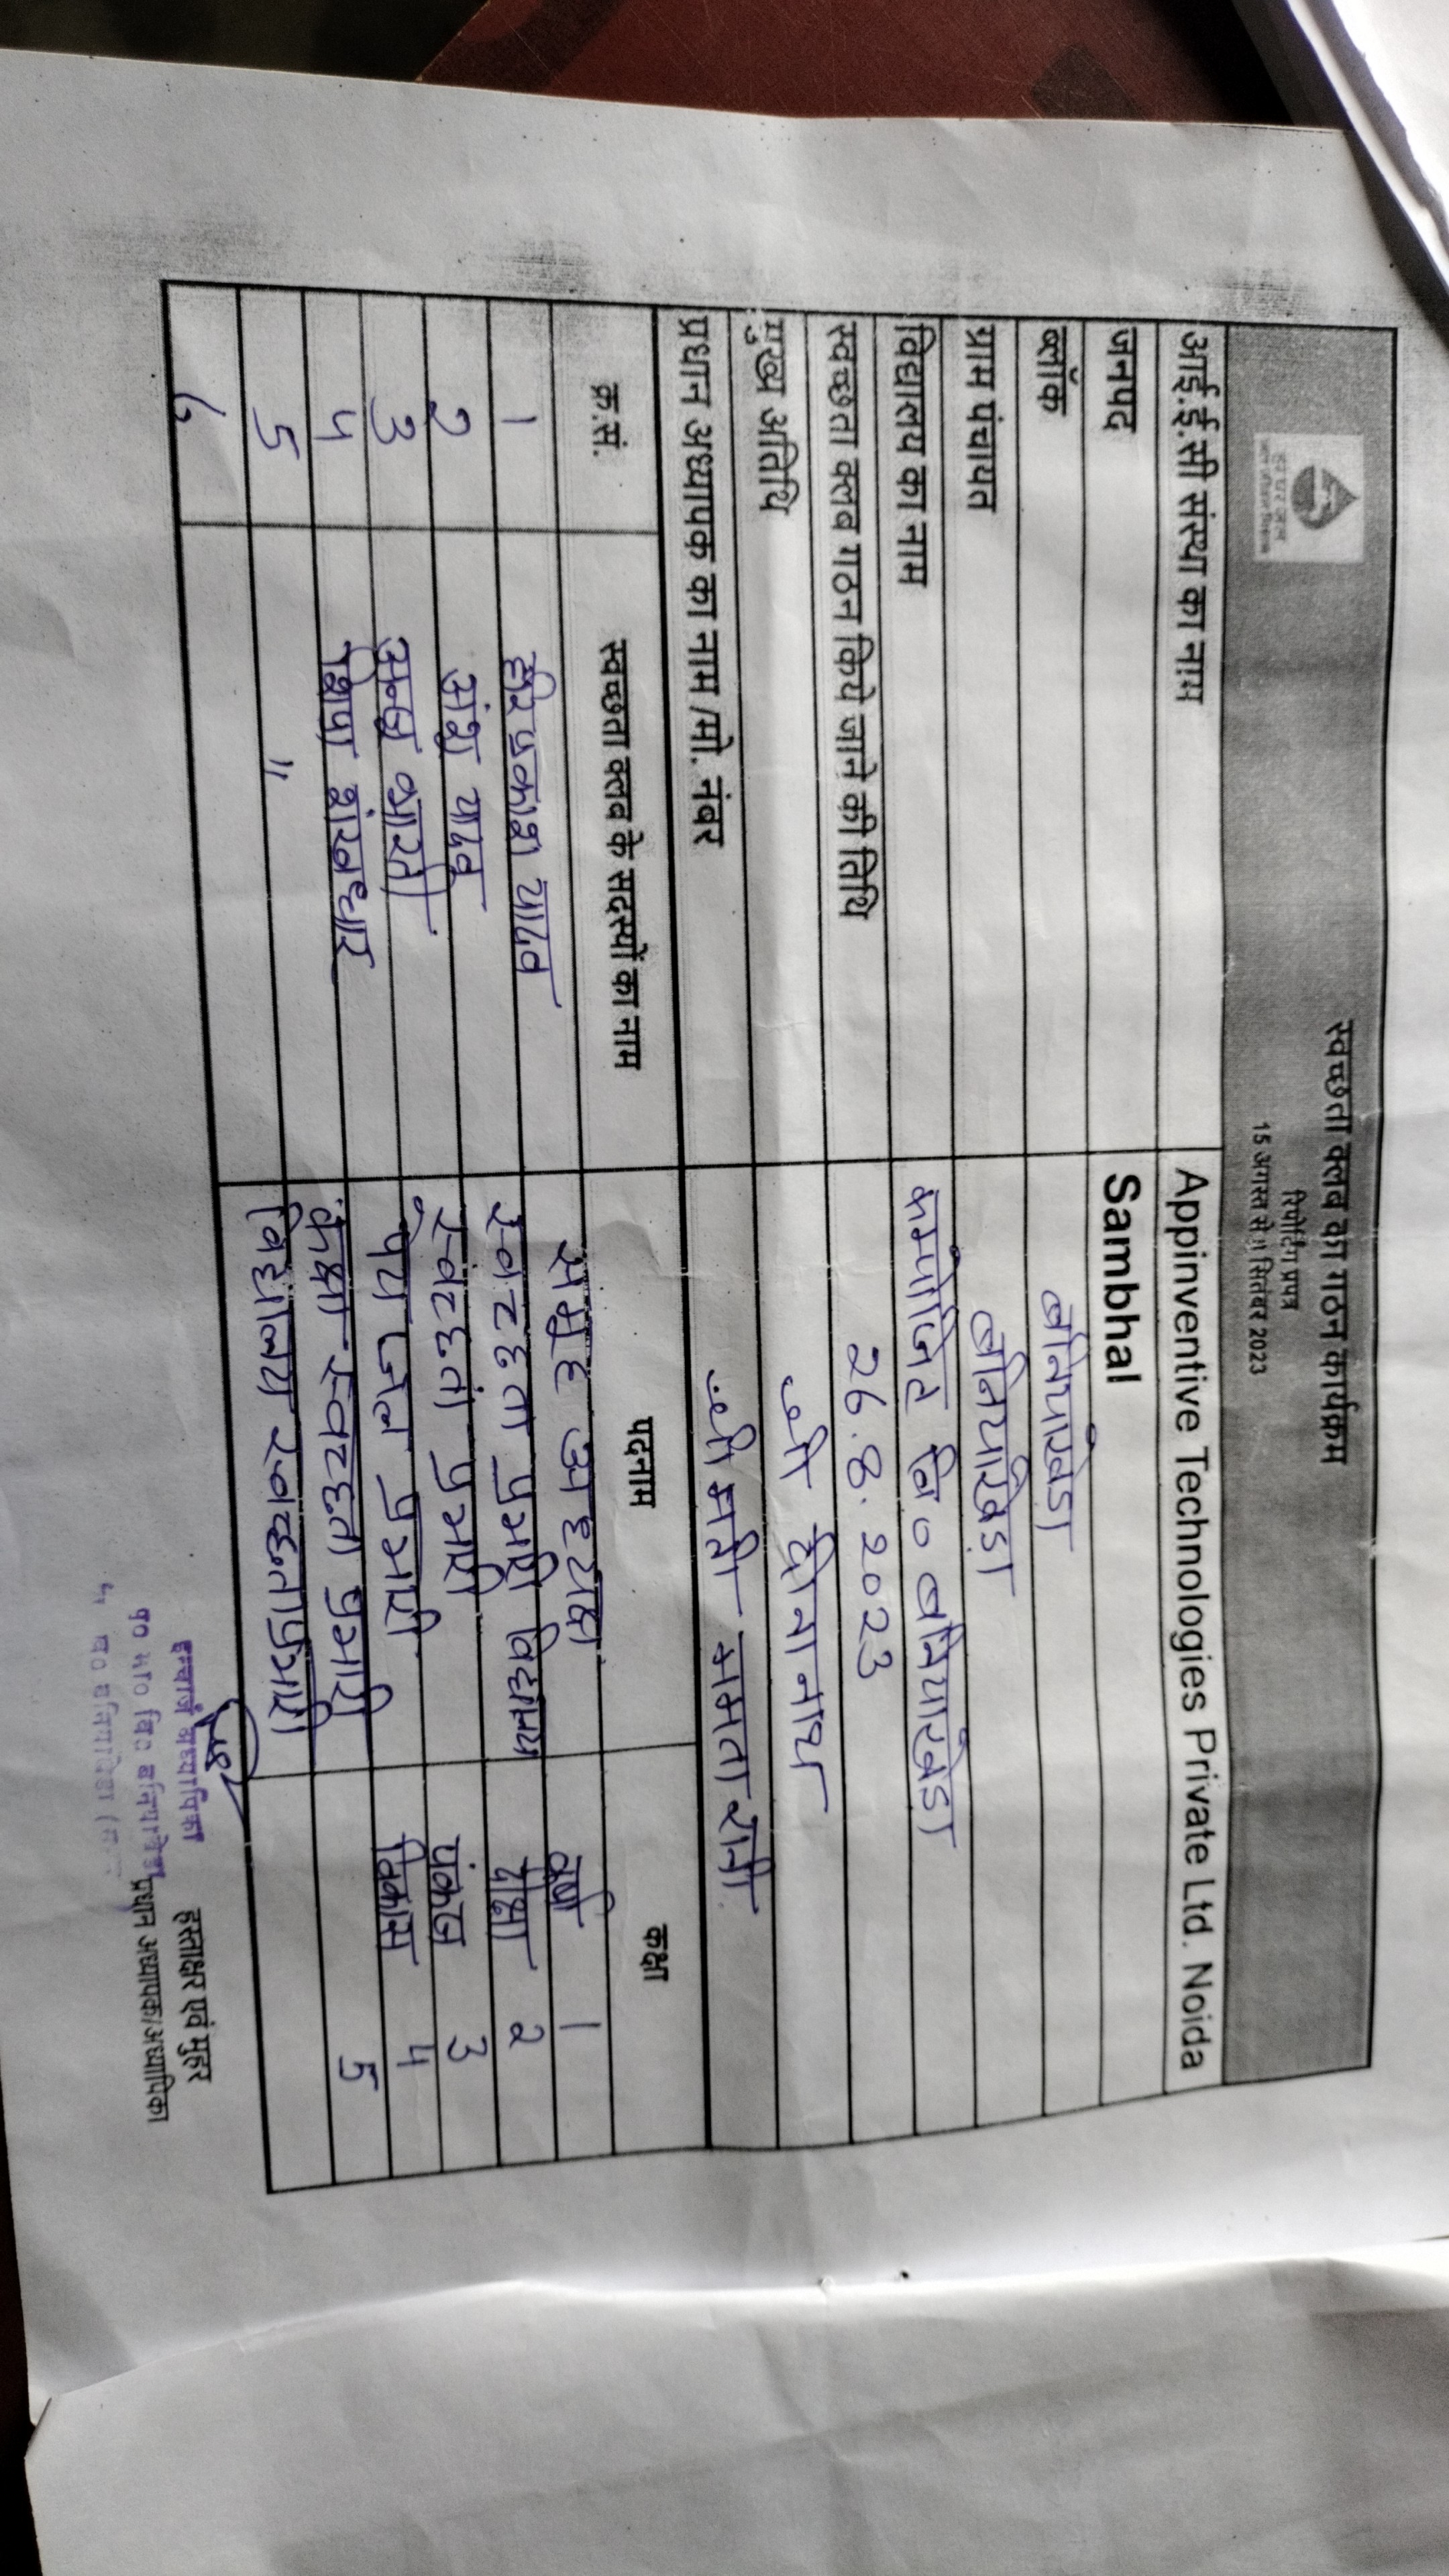 स्वच्छता क्लब का गठन कार्यक्रम
रिपोर्टिंग प्रपत्र
15 अगस्त से सितंबर 2023
हर घर जल
आई.ई.सी संस्था का नाम Appinventive Technologies Private Ltd. Noida
जनपद Sambhal
ब्लॉक बनियाखेडा
ग्राम पंचायत बनियाखेडा
विद्यालय का नाम कम्पोजिट वि० बनियाखेडा
स्वच्छता क्लब गठन किये जाने की तिथि 26.8.2023
मुख्य अतिथि श्री दीनानाथ
प्रधान अध्यापक का नाम /मो. नंबर श्री मती ममता रानी
क्र.सं. स्वच्छता क्लब के सदस्यों का नाम पदनाम कक्षा
1 यादव समूह 1
2 अंश यादव स्वच्छता प्रभारी 2
3 स्वच्छता प्रभारी पंकज 3
4 पेयजल प्रभारी विकास 4
5 " कक्षा स्वच्छता प्रभारी 5
6 विद्यालय स्वच्छता प्रभारी
हस्ताक्षर एवं मुहर
प्रधान अध्यापक/अध्यापिका
इन्चार्ज अध्यापिका